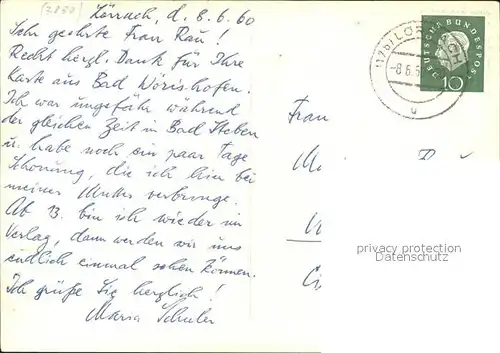 (2850)
Lörrach, d. 8.6.60
Sehr geehrte Frau Rau!
Recht herzl. Dank für Ihre
Karte aus Bad Wörishofen.
Ich war ungefähr während
der gleichen Zeit in Bad Steben
u. habe noch ein paar Tage
Schonung, die ich hier bei
meiner Mutter verbringe.
Ab 13. bin ich wieder im
Verlag, dann werden wir uns
endlich einmal sehen können.
Ich grüße Sie herzlich!
Maria Schuler
(17b) LÖRRACH
-8.6.
DEUTSCHE BUNDESPOST
10
Frau
privacy protection
Datenschutz